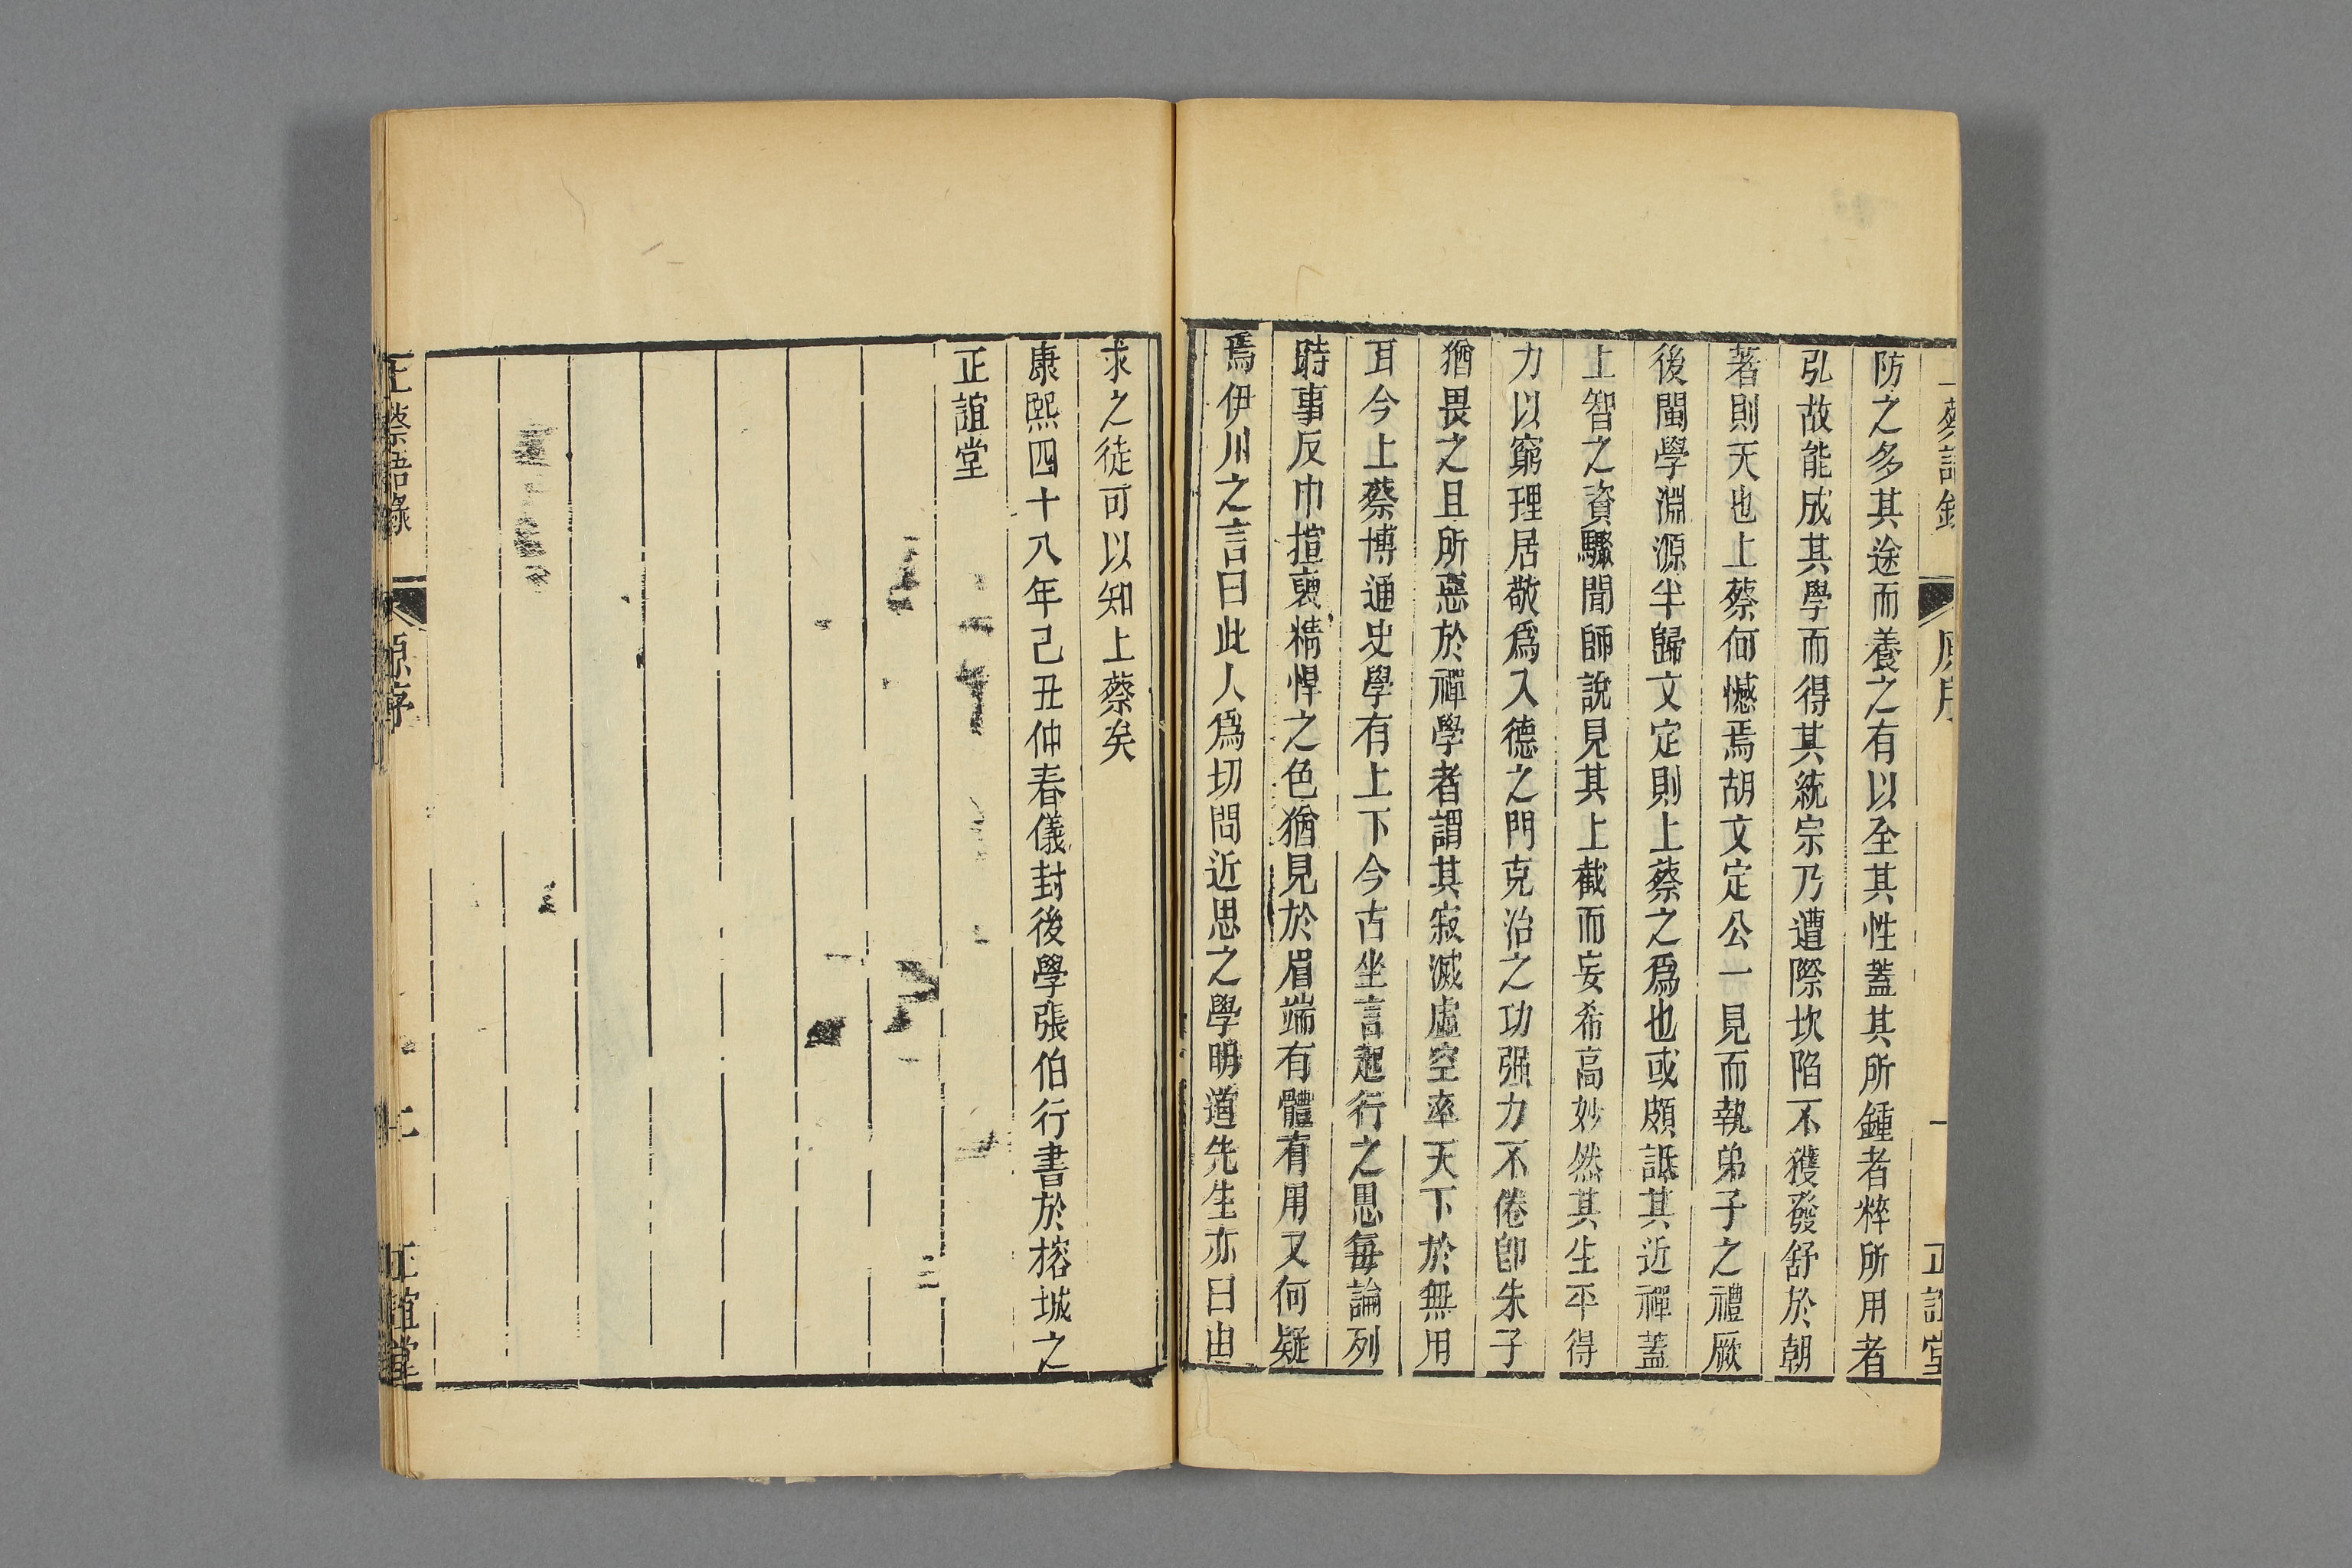 防之多其途而養之有以至其性蓋其所鍾者粹所用者
弘故能成其學而得其統宗乃遭際坎陷不獲發舒於朝
著則天也上蔡何憾焉胡文定公一見而執弟子之禮厥
後閩學淵源半歸文定則上蔡之爲也或頗詆其近禪蓋
上智之資驟聞師說見其上截而妄希高妙然其生平得
力以窮理居敬爲入德之門克治之功强力不倦卽朱子
猶畏之且所惡於禪學者謂其寂滅虛空率天下於無用
耳今上蔡博通史學有上下今古坐言起行之思每論列
時事反巾揎褏精悍之色猶見於眉端有體有用又何疑
焉伊川之言曰此人爲切問近思之學明道先生亦曰由
求之徒可以知上蔡矣
康熙四十八年己丑仲春儀封後學張伯行書於榕城之
正誼堂
上蔡語錄 原序 二 正誼堂